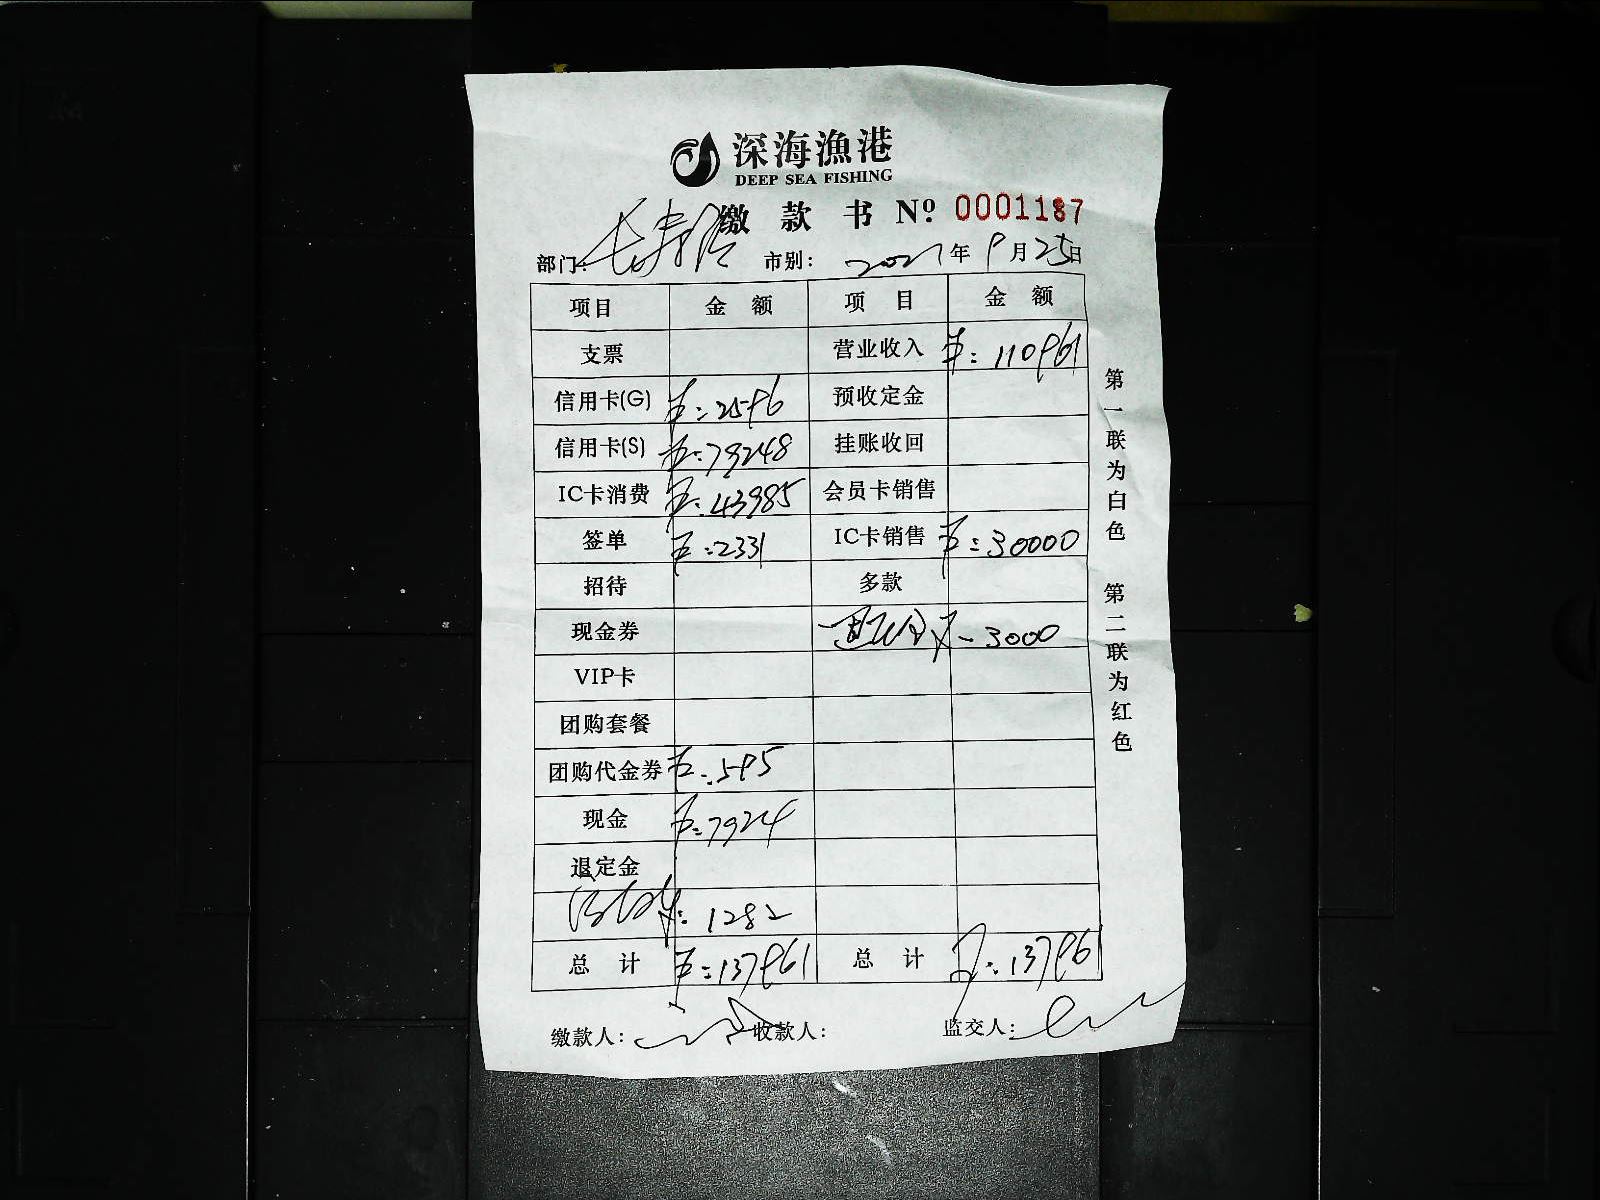 深海漁港
DEEP SEA FISHING
缴款书 Nº 0001187
部门: 长寿路 市别: 2021年9月25日
项目 金额 项目 金额
支票 营业收入 ¥: 110961
信用卡(G) ¥: 2596 预收定金
信用卡(S) ¥: 79248 挂账收回
IC卡消费 ¥: 43985 会员卡销售
签单 ¥: 2331 IC卡销售 ¥: 30000
招待 多款
现金券 -3000
VIP卡
团购套餐
团购代金券 ¥: 595
现金 ¥: 7924
退定金
¥: 1282
总计 ¥: 137961 总计 ¥: 137961
缴款人: 收款人: 监交人:
第一联为白色 第二联为红色